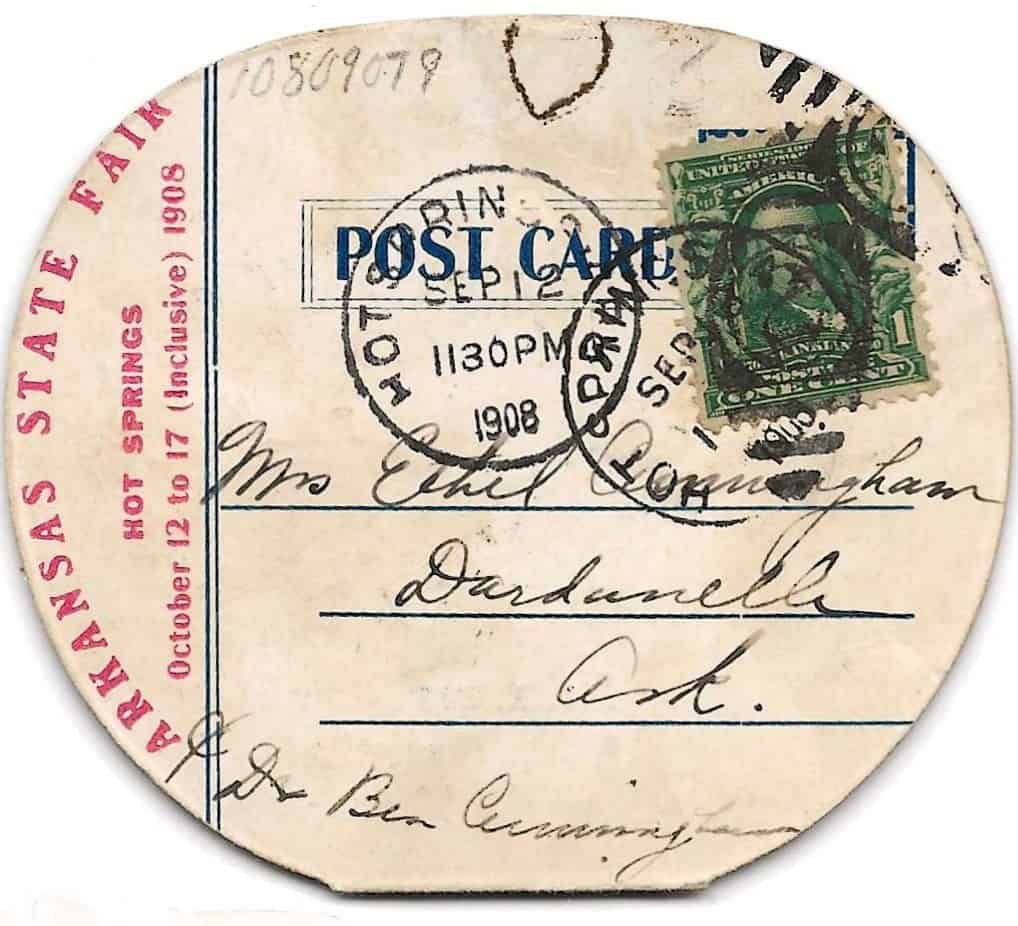 10809079
ARKANSAS STATE FAIR
HOT SPRINGS
October 12 to 17 (Inclusive) 1908
POST CARD
HOT SPRINGS
SEP 12
1130PM
1908
HOT SPRINGS
SEP
SERIES 1902
UNITED STATES OF
AMERICA
FRANKLIN
ONE CENT
1
Mrs Ethel Cunningham
Dardanelle
Ark.
℅ Dr Ben Cunningham